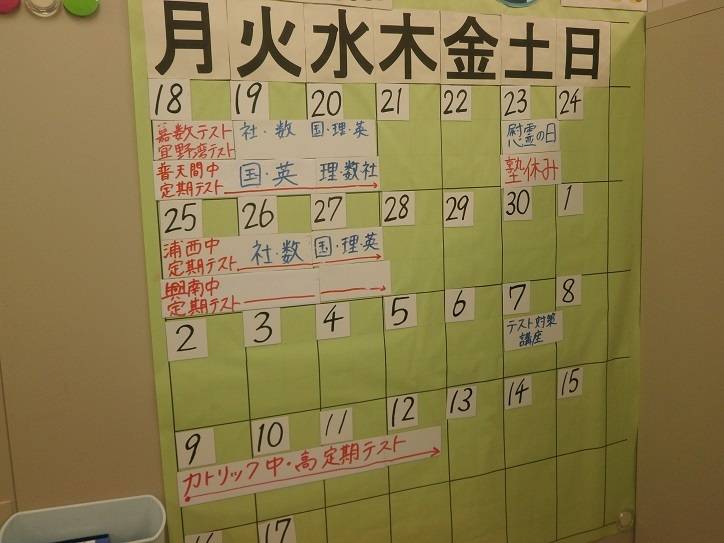 月火水木金土日
18 19 20 21 22 23 24
嘉数テスト 社・数 国・理・英 慰霊の日
宜野湾テスト
普天間中 国・英 理数社 塾休み
定期テスト
25 26 27 28 29 30 1
浦西中 社・数 国・理・英
定期テスト
興南中
定期テスト
2 3 4 5 6 7 8
テスト対策
講座
9 10 11 12 13 14 15
カトリック中・高定期テスト
16 17